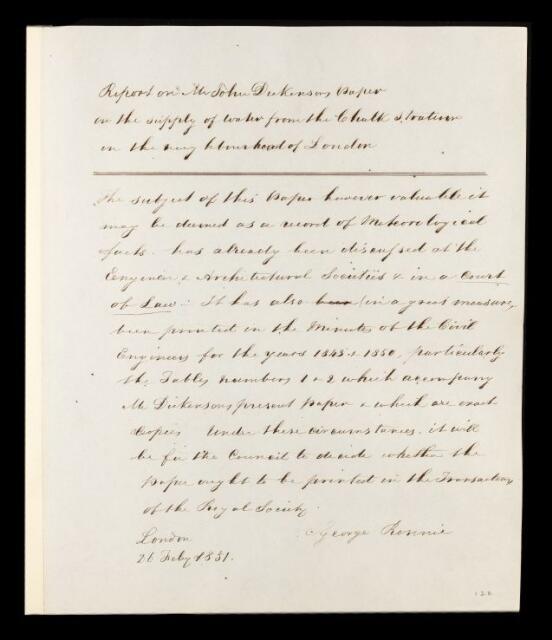 Report on Mr John Dickensons Paper
on the supply of water from the Chalk stratum
in the neighbourhood of London
The subject of this Paper however valuable it
may be deemed as a record of Meteorological
facts. has already been discussed at the
Engineer & Architectural Societies & in a Court
of Law. It has also been (in a great measure,
been printed in the Minutes of the Civil
Engineers for the years & 1850, particularly
the Tables numbers 1 & 2 which accompany
Mr Dickensons present Paper & which are exact
Copies Under these circumstances. it will
be for the Council to decide whether the
Paper ought to be printed in the Transactions
of the Royal Society.
George Rennie
London
26 Feby 1851.